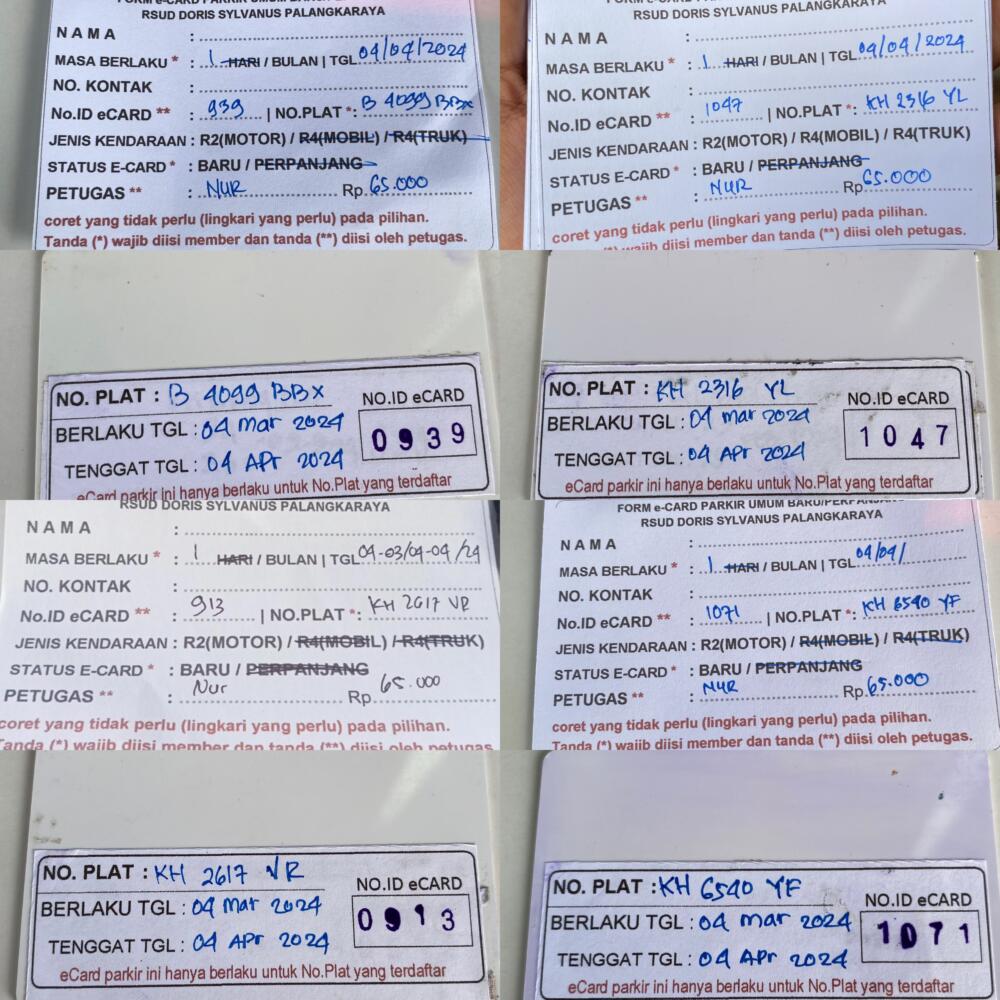 RSUD DORIS SYLVANUS PALANGKARAYA
NAMA :
MASA BERLAKU * : 1 HARI / BULAN | TGL 04/04/2024
NO. KONTAK :
No.ID eCARD ** : 939 | NO.PLAT *: B 4099 BBX
JENIS KENDARAAN : R2(MOTOR) / R4(MOBIL) / R4(TRUK)
STATUS E-CARD * : BARU / PERPANJANG
PETUGAS ** : NUR Rp. 65.000
coret yang tidak perlu (lingkari yang perlu) pada pilihan.
Tanda (*) wajib diisi member dan tanda (**) diisi oleh petugas.
RSUD DORIS SYLVANUS PALANGKARAYA
NAMA :
MASA BERLAKU * : 1 HARI / BULAN | TGL 04/04/2024
NO. KONTAK :
No.ID eCARD ** : 1047 | NO.PLAT *: KH 2316 YL
JENIS KENDARAAN : R2(MOTOR) / R4(MOBIL) / R4(TRUK)
STATUS E-CARD * : BARU / PERPANJANG
PETUGAS ** : NUR Rp. 65.000
coret yang tidak perlu (lingkari yang perlu) pada pilihan.
wajib diisi member dan tanda (**) diisi oleh petugas.
NO. PLAT : B 4099 BBX
NO.ID eCARD
BERLAKU TGL : 04 Mar 2024
0939
TENGGAT TGL : 04 Apr 2024
eCard parkir ini hanya berlaku untuk No.Plat yang terdaftar
NO. PLAT : KH 2316 YL
NO.ID eCARD
BERLAKU TGL : 04 Mar 2024
1047
TENGGAT TGL : 04 Apr 2024
eCard parkir ini hanya berlaku untuk No.Plat yang terdaftar
RSUD DORIS SYLVANUS PALANGKARAYA
NAMA :
MASA BERLAKU * : 1 HARI / BULAN | TGL 04-03/04-04/24
NO. KONTAK :
No.ID eCARD ** : 913 | NO.PLAT *: KH 2617 VR
JENIS KENDARAAN : R2(MOTOR) / R4(MOBIL) / R4(TRUK)
STATUS E-CARD * : BARU / PERPANJANG
PETUGAS ** : Nur Rp. 65.000
coret yang tidak perlu (lingkari yang perlu) pada pilihan.
Tanda (*) wajib diisi member dan tanda (**) diisi oleh petugas.
FORM e-CARD PARKIR UMUM BARU/PERPANJANG
RSUD DORIS SYLVANUS PALANGKARAYA
NAMA :
MASA BERLAKU * : 1 HARI / BULAN | TGL 04/04/
NO. KONTAK :
No.ID eCARD ** : 1071 | NO.PLAT *: KH 6540 YF
JENIS KENDARAAN : R2(MOTOR) / R4(MOBIL) / R4(TRUK)
STATUS E-CARD * : BARU / PERPANJANG
PETUGAS ** : NUR Rp. 65.000
coret yang tidak perlu (lingkari yang perlu) pada pilihan.
Tanda (*) wajib diisi member dan tanda (**) diisi oleh petugas.
NO. PLAT : KH 2617 VR
NO.ID eCARD
BERLAKU TGL : 04 Mar 2024
0913
TENGGAT TGL : 04 Apr 2024
eCard parkir ini hanya berlaku untuk No.Plat yang terdaftar
NO. PLAT : KH 6540 YF
NO.ID eCARD
BERLAKU TGL : 04 Mar 2024
1071
TENGGAT TGL : 04 Apr 2024
eCard parkir ini hanya berlaku untuk No.Plat yang terdaftar